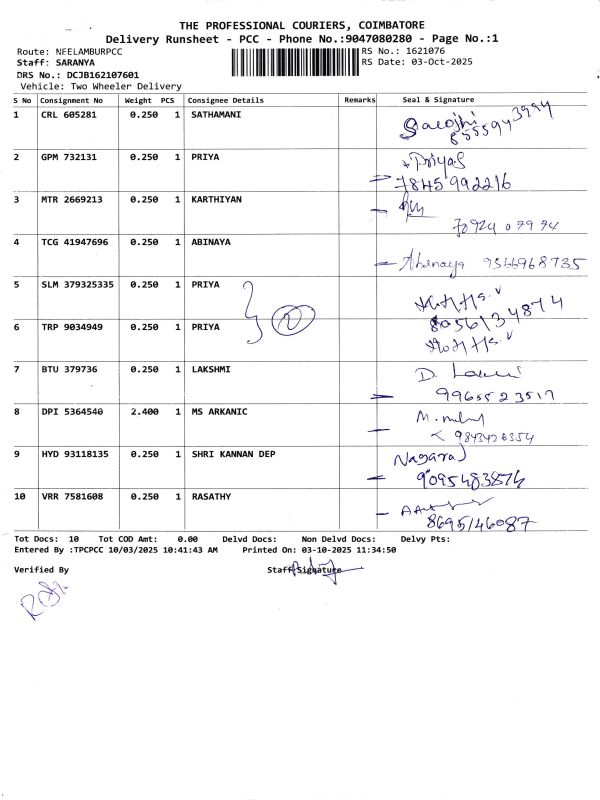 THE PROFESSIONAL COURIERS, COIMBATORE
Delivery Runsheet - PCC - Phone No.:9047080280 - Page No.:1
Route: NEELAMBURPCC RS No.: 1621076
Staff: SARANYA RS Date: 03-Oct-2025
DRS No.: DCJB162107601
Vehicle: Two Wheeler Delivery
S No Consignment No Weight PCS Consignee Details Remarks Seal & Signature
1 CRL 605281 0.250 1 SATHAMANI
2 GPM 732131 0.250 1 PRIYA Priya
7845992216
3 MTR 2669213 0.250 1 KARTHIYAN
4 TCG 41947696 0.250 1 ABINAYA Abinaya 9566968735
5 SLM 379325335 0.250 1 PRIYA
2 8056134874
6 TRP 9034949 0.250 1 PRIYA
7 BTU 379736 0.250 1 LAKSHMI D.
9965523517
8 DPI 5364540 2.400 1 MS ARKANIC
9 HYD 93118135 0.250 1 SHRI KANNAN DEP Nagaraj
9095483874
10 VRR 7581608 0.250 1 RASATHY
8695146087
Tot Docs: 10 Tot COD Amt: 0.00 Delvd Docs: Non Delvd Docs: Delvy Pts:
Entered By :TPCPCC 10/03/2025 10:41:43 AM Printed On: 03-10-2025 11:34:50
Verified By Staff Signature